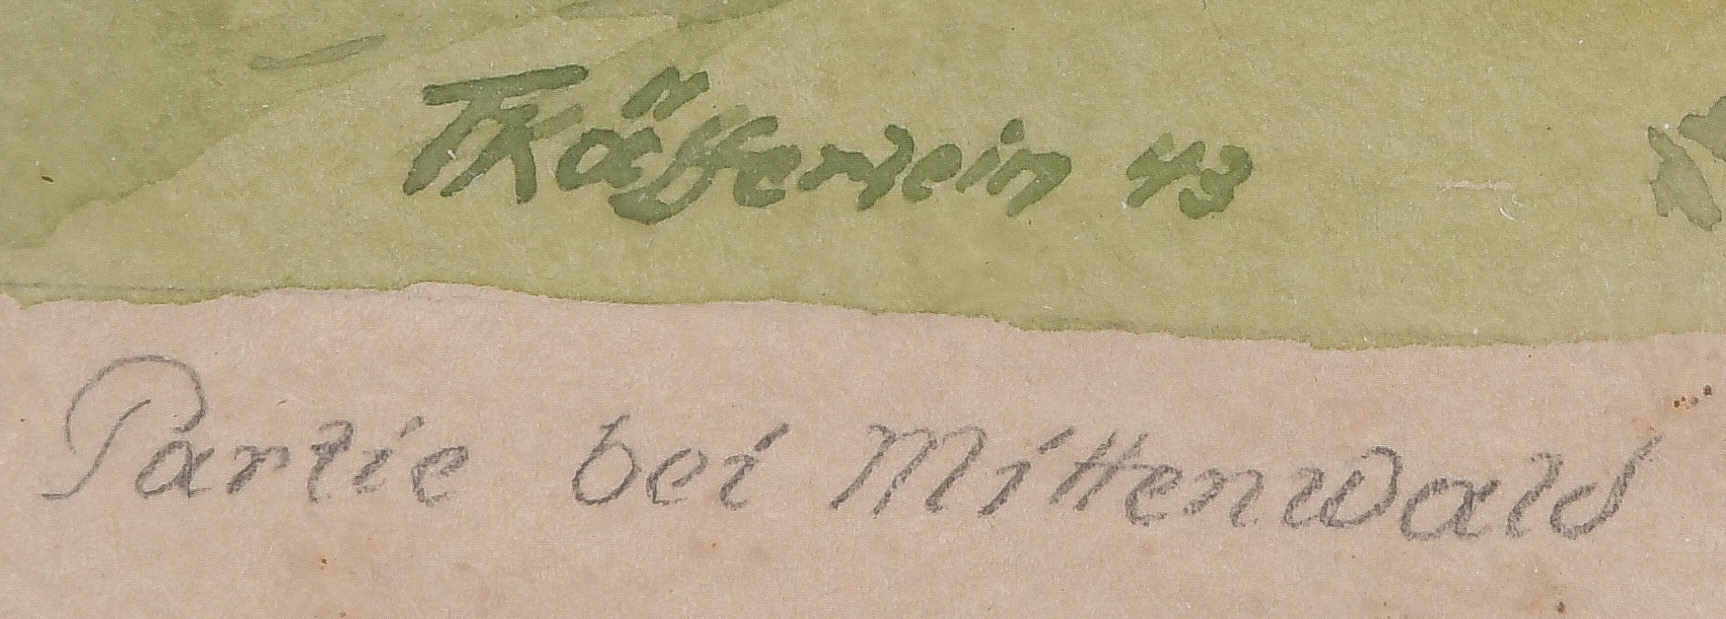 TKäfferlein 43
Partie bei Mittenwald